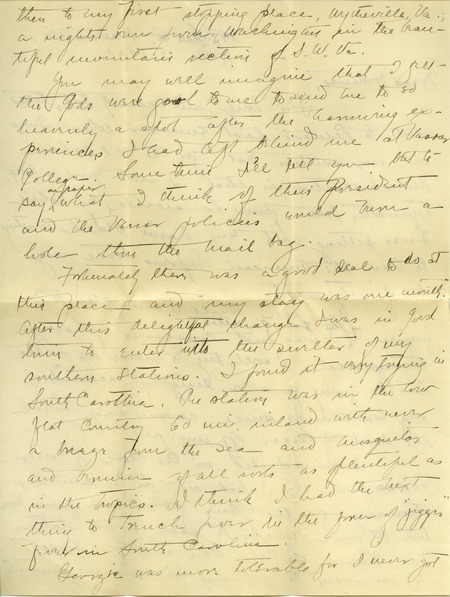 then to my first stopping place, Wytheville, Va.,
a night's run from Washington in the beau-
tiful mountain section of S. W. Va.
You may well imagine that I felt
the Gods were good to me to send me to so
heavenly a spot after the harrowing ex-
periences I had left behind me at Vassar
College. Some time I'll tell you but to
say on paper what I think of their President
and the Vassar policies would burn a
hole thru the mail bag.
Fortunately there was a good deal to do at
this place and my stay was one month.
After this delightful change I was in good
trim to enter into the swelter of my
southern stations. I found it very trying in
South Carolina. The station was in the low
flat country 60 mi. inland with never
a breeze from the sea and mosquitos
and vermin of all sorts as plentiful as
in the tropics. I think I had the next
thing to trench fever in the form of "jigger"
fever in South Carolina.
Georgia was more tolerable for I never got